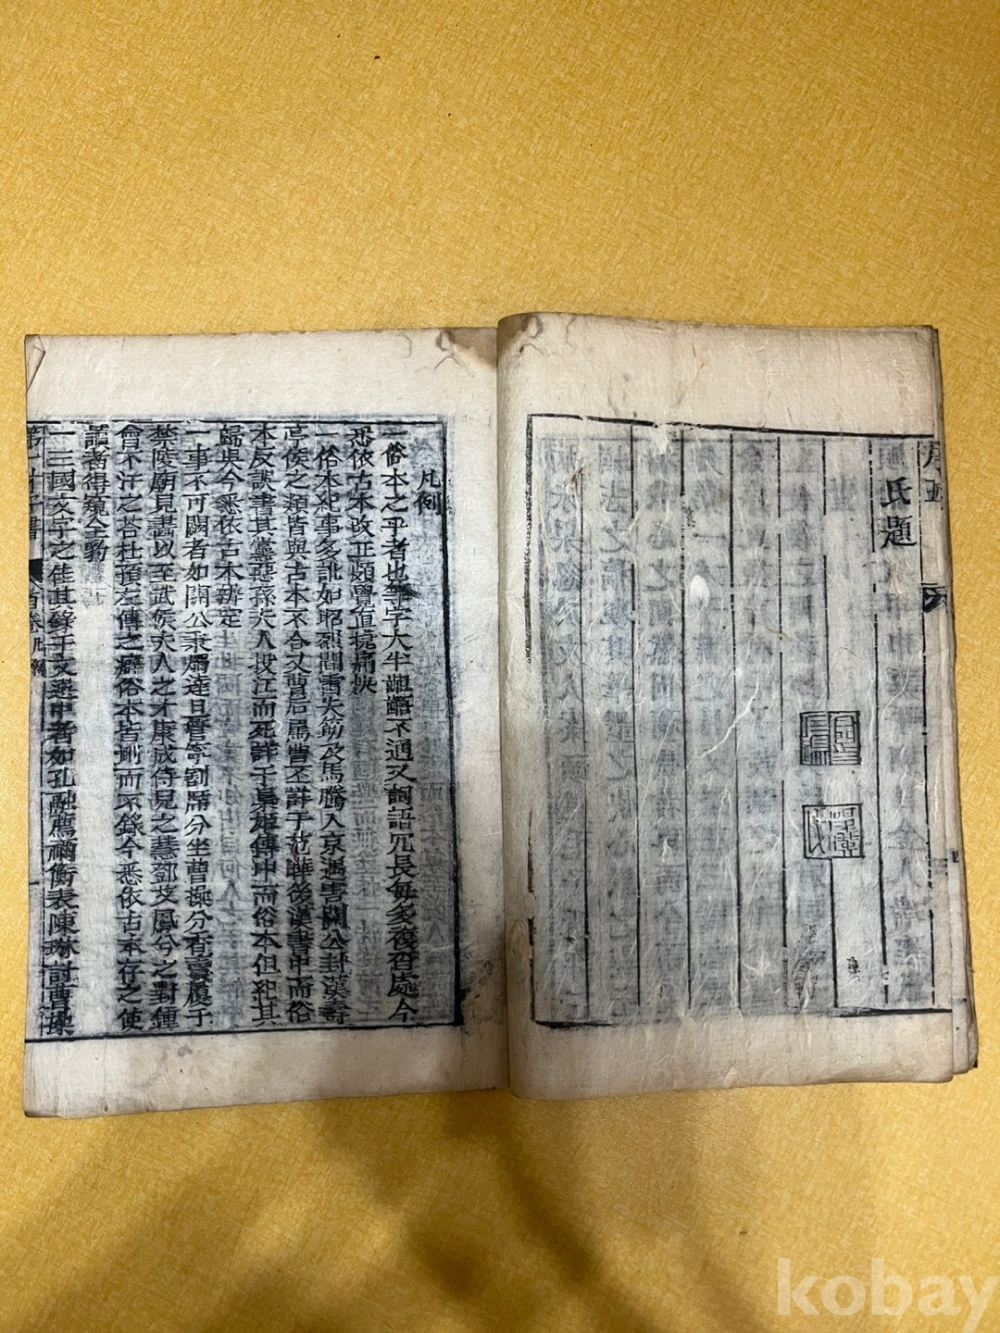 氏題
凡例
一俗本之乎者也等字大半齟齬不通又詞語冗長每多復沓處今
悉依古本改正頗覺直捷痛快
一俗本紀事多訛如昭烈聞雷失筯及馬騰入京遇害關公封漢壽
亭侯之類皆與古本不合又曹后罵曹丕詳于范曄後漢書中而俗
本反誤書其黨惡孫夫人投江而死詳于梟姬傳中而俗本但紀其
歸吳今悉依古本辨定
一事不可闕者如關公秉燭達旦管寧割席分坐曹操分香賣履于
禁陵廟見畫以至武侯夫人之才康成侍兒之慧鄧艾鳳兮之對鍾
會不汗之答杜預左傳之癖俗本皆刪而不錄今悉依古本存之使
讀者得窺全豹
一三國文字之佳其錄于文選中者如孔融薦禰衡表陳琳討曹操
第一才子書
kobay